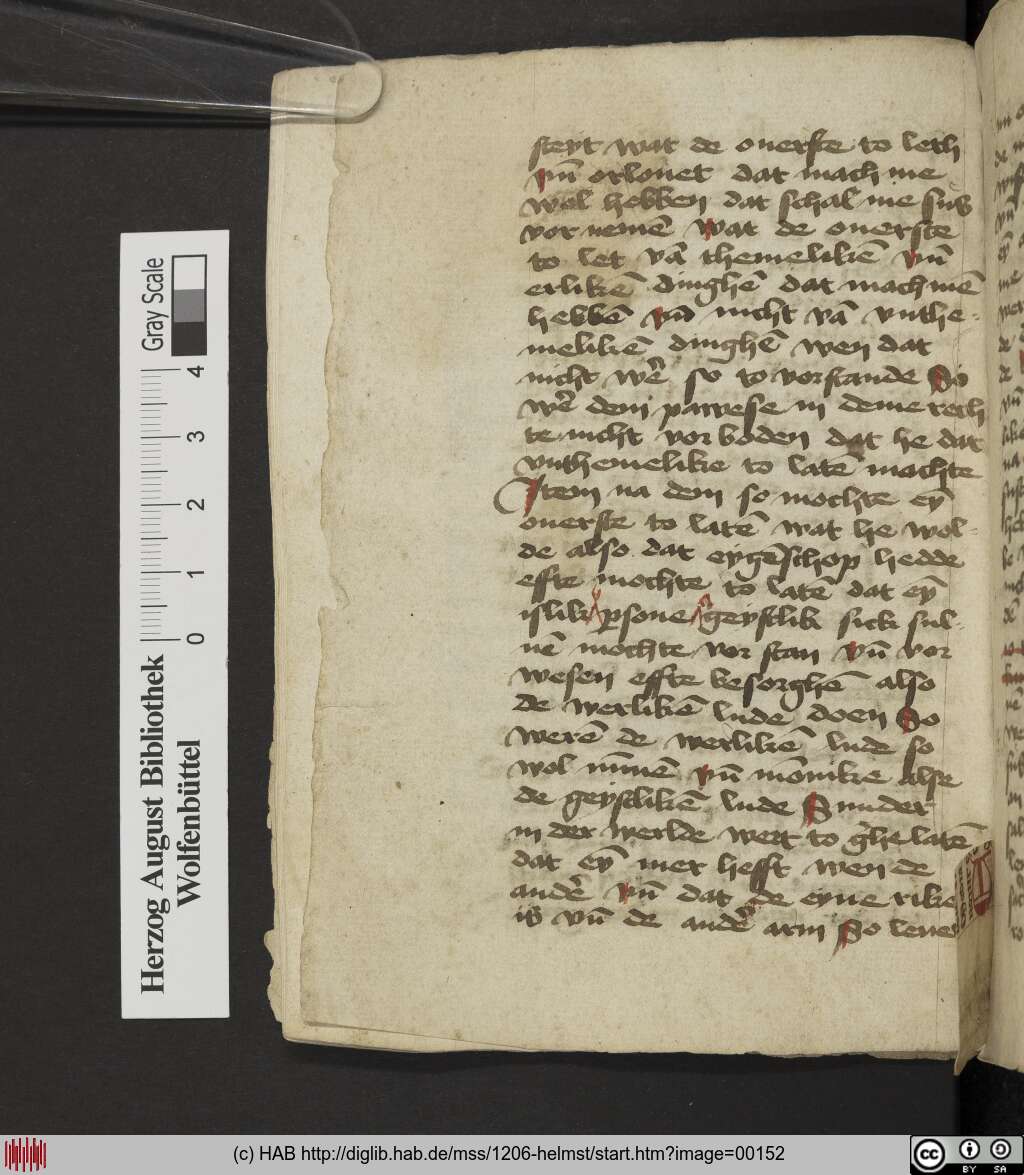 steyt wat de ouerste to leth
vn̄ orlouet dat mach me
wol hebben dat schal me sus
vor nemē wat de ouerste
to let vā themelikē vn̄
erlikē dinghē dat mach mē
hebbē vn̄ nicht vā vnthe-
melikē dinghē wen dat
nicht wē so to vorstande So
wē dem pawese in deme rech
te nicht vor boden dat he dat
vnthemelike to latē mochte
Item na dem so mochte eȳ
ouerste to latē wat he wol-
de also dat eygēschop hedde
effte mochte to latē dat eȳ
islik psone geystlik sick sul-
uē mochte vor stan vn̄ vor
wesen effte besorghē also
de werlikē lude doen So
werē de werlikē lude so
wol nūnē vn̄ mōnike alse
de geystlikē lude Sunder
in der werlde wert to ghelatē
dat eȳ mer hefft wen de
andē vn̄ dat de eyne rike
is vn̄ de andē arm So leuer
Herzog August Bibliothek
Wolfenbüttel
0 1 2 3 4
Gray Scale
(c) HAB http://diglib.hab.de/mss/1206-helmst/start.htm?image=00152
cc BY SA